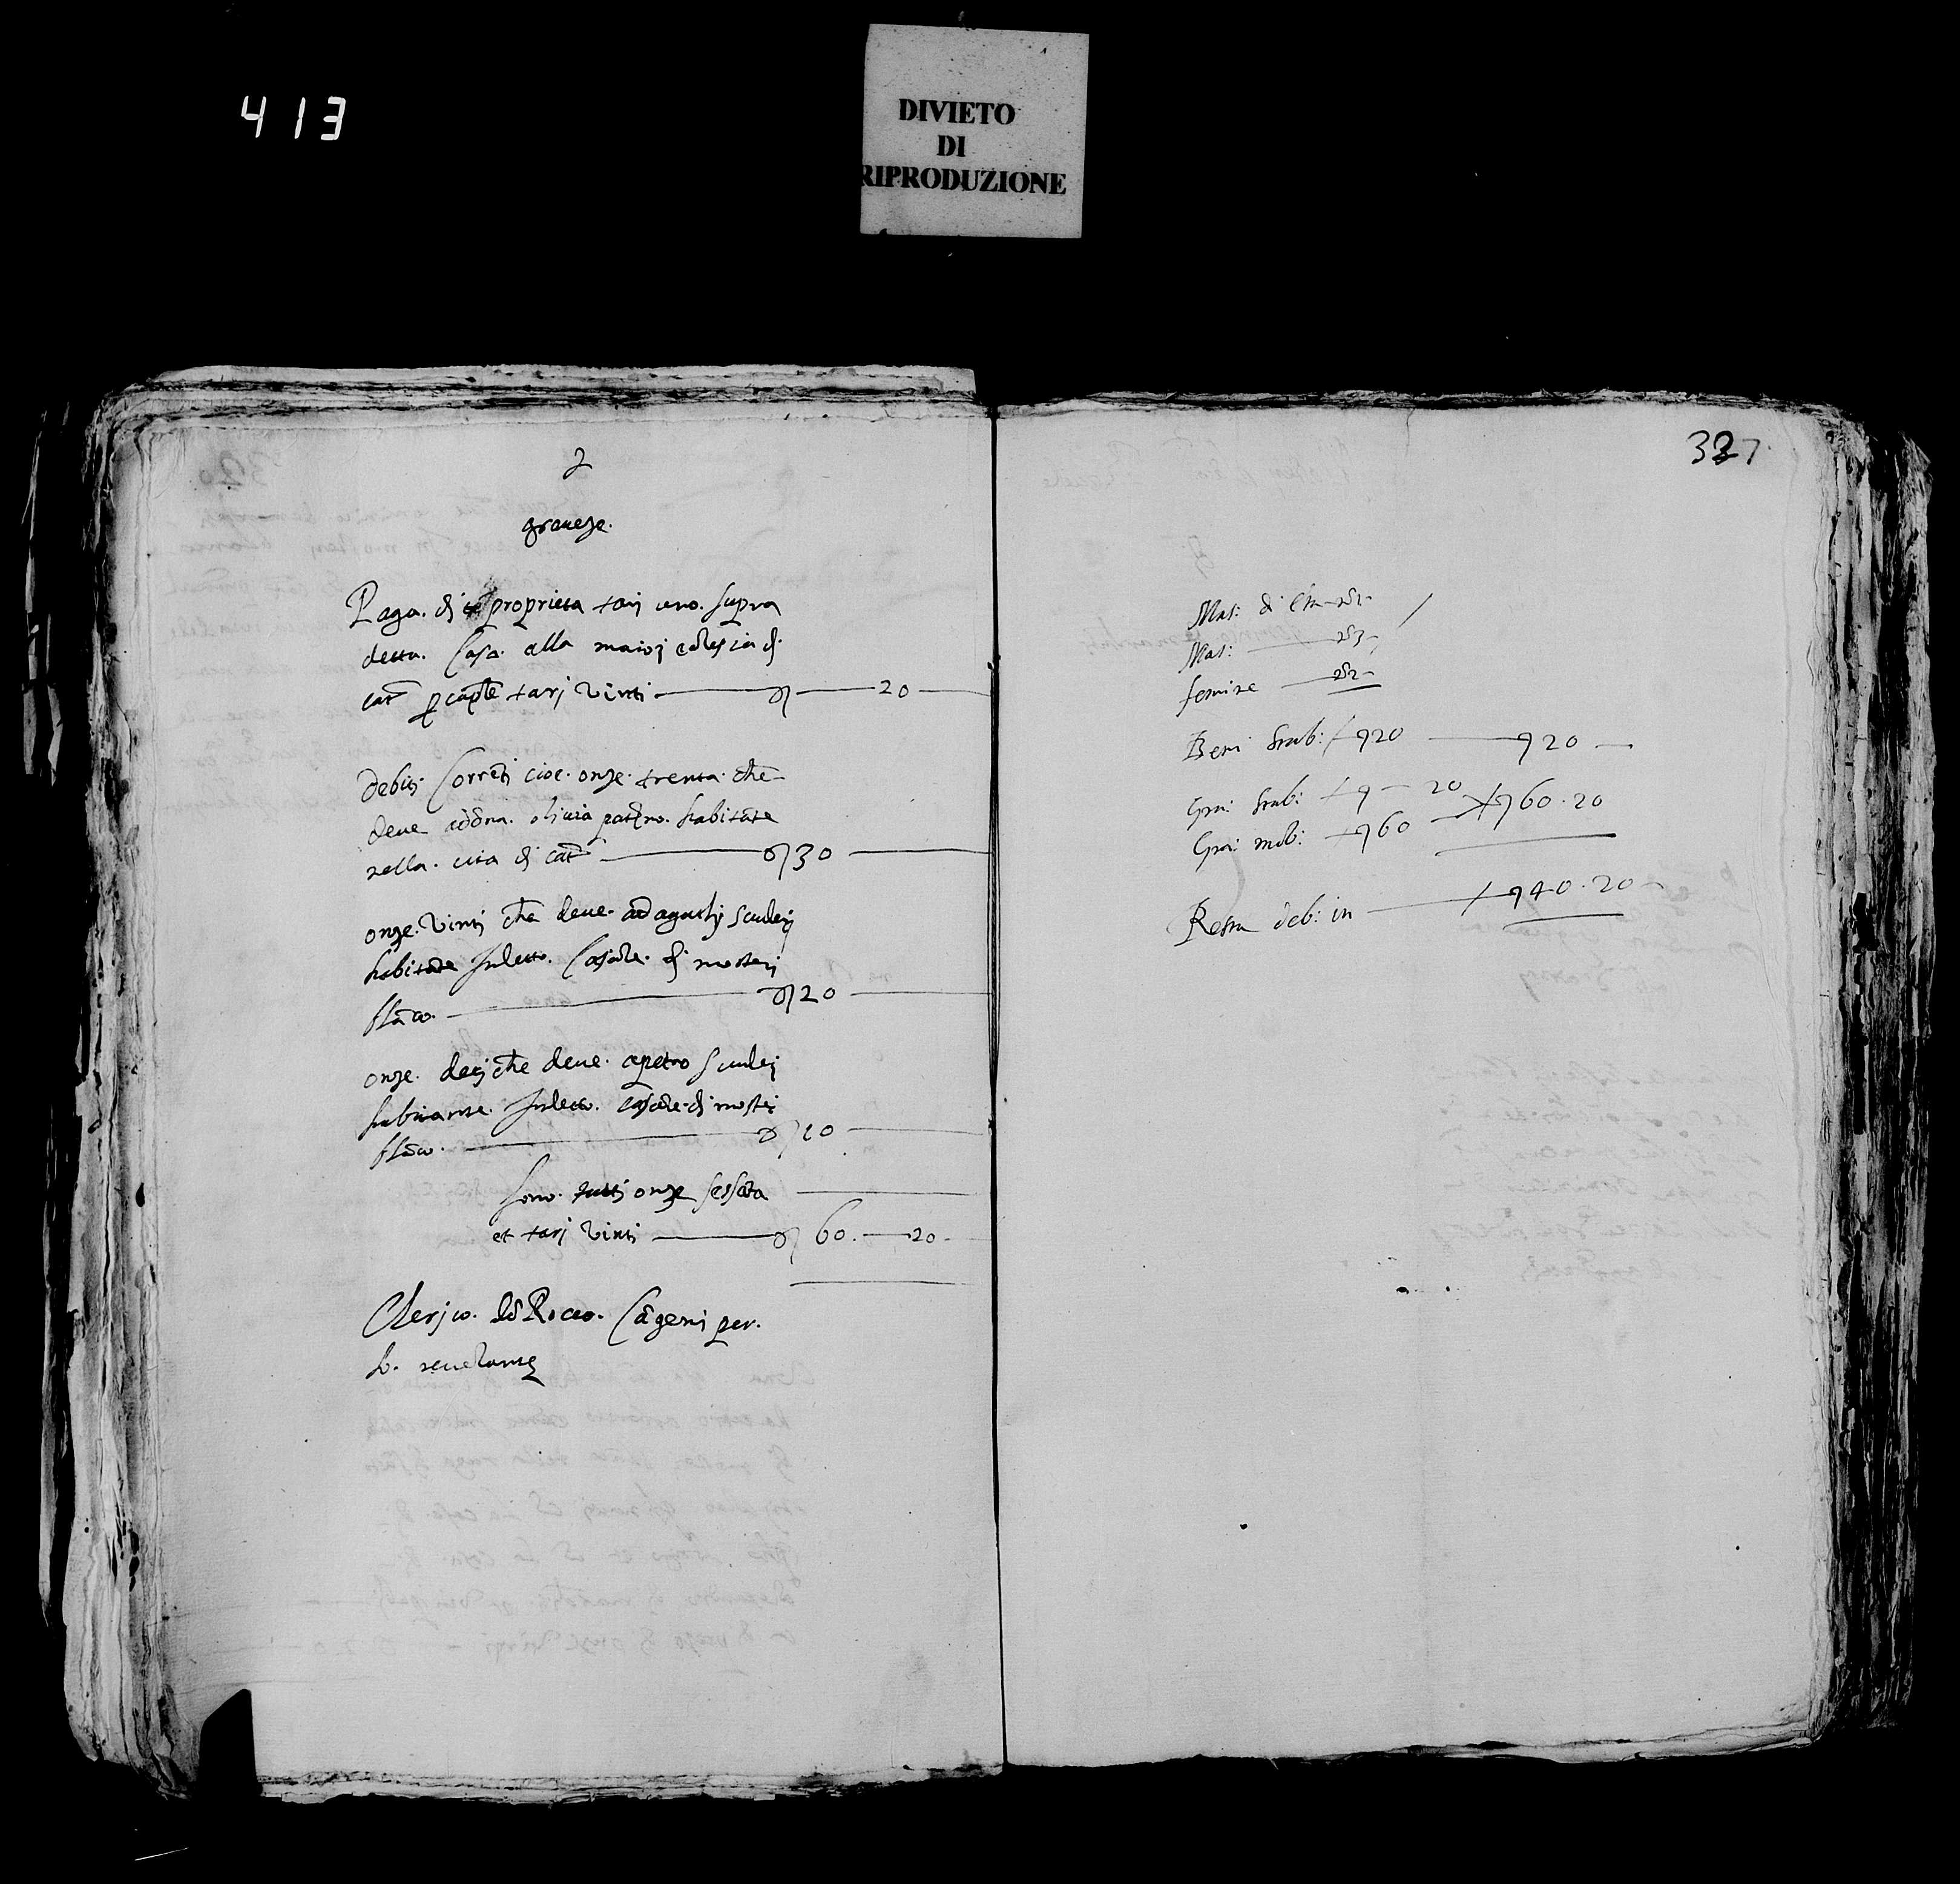 413
DIVIETO
DI
RIPRODUZIONE
2
graueze.
Paga. di proprieta tarj uno. supra
detta. Casa. alla maiorj eclesia di
cat.a p caple tarj vinti — 20 —
debiti Correti cioe. onze. trenta. che
deue ad dna. oliuia paterno. habitate
nella. cita di cat.a — 30 —
onze. vinti che deue. ad agustj scuderj
habitate Jndetto. Casale. di mosterj
blaco. — 20 —
onze. decj che deue. a petro scuderj
habitante. Jndetto. Casale. di mosterj
blaco. — 10 —
sono. tutti onze sessata —
et tarj vinti — 60. — 20 —
Clerico. Rocco. Cageni per.
lo. reuelante
327
Mas: di
Mas:
femine
Beni Stab: 20 — 20 —
Gra: Stab: — 20 60. 20
Gra: mob: 60
Resta deb: in — 40. 20 —